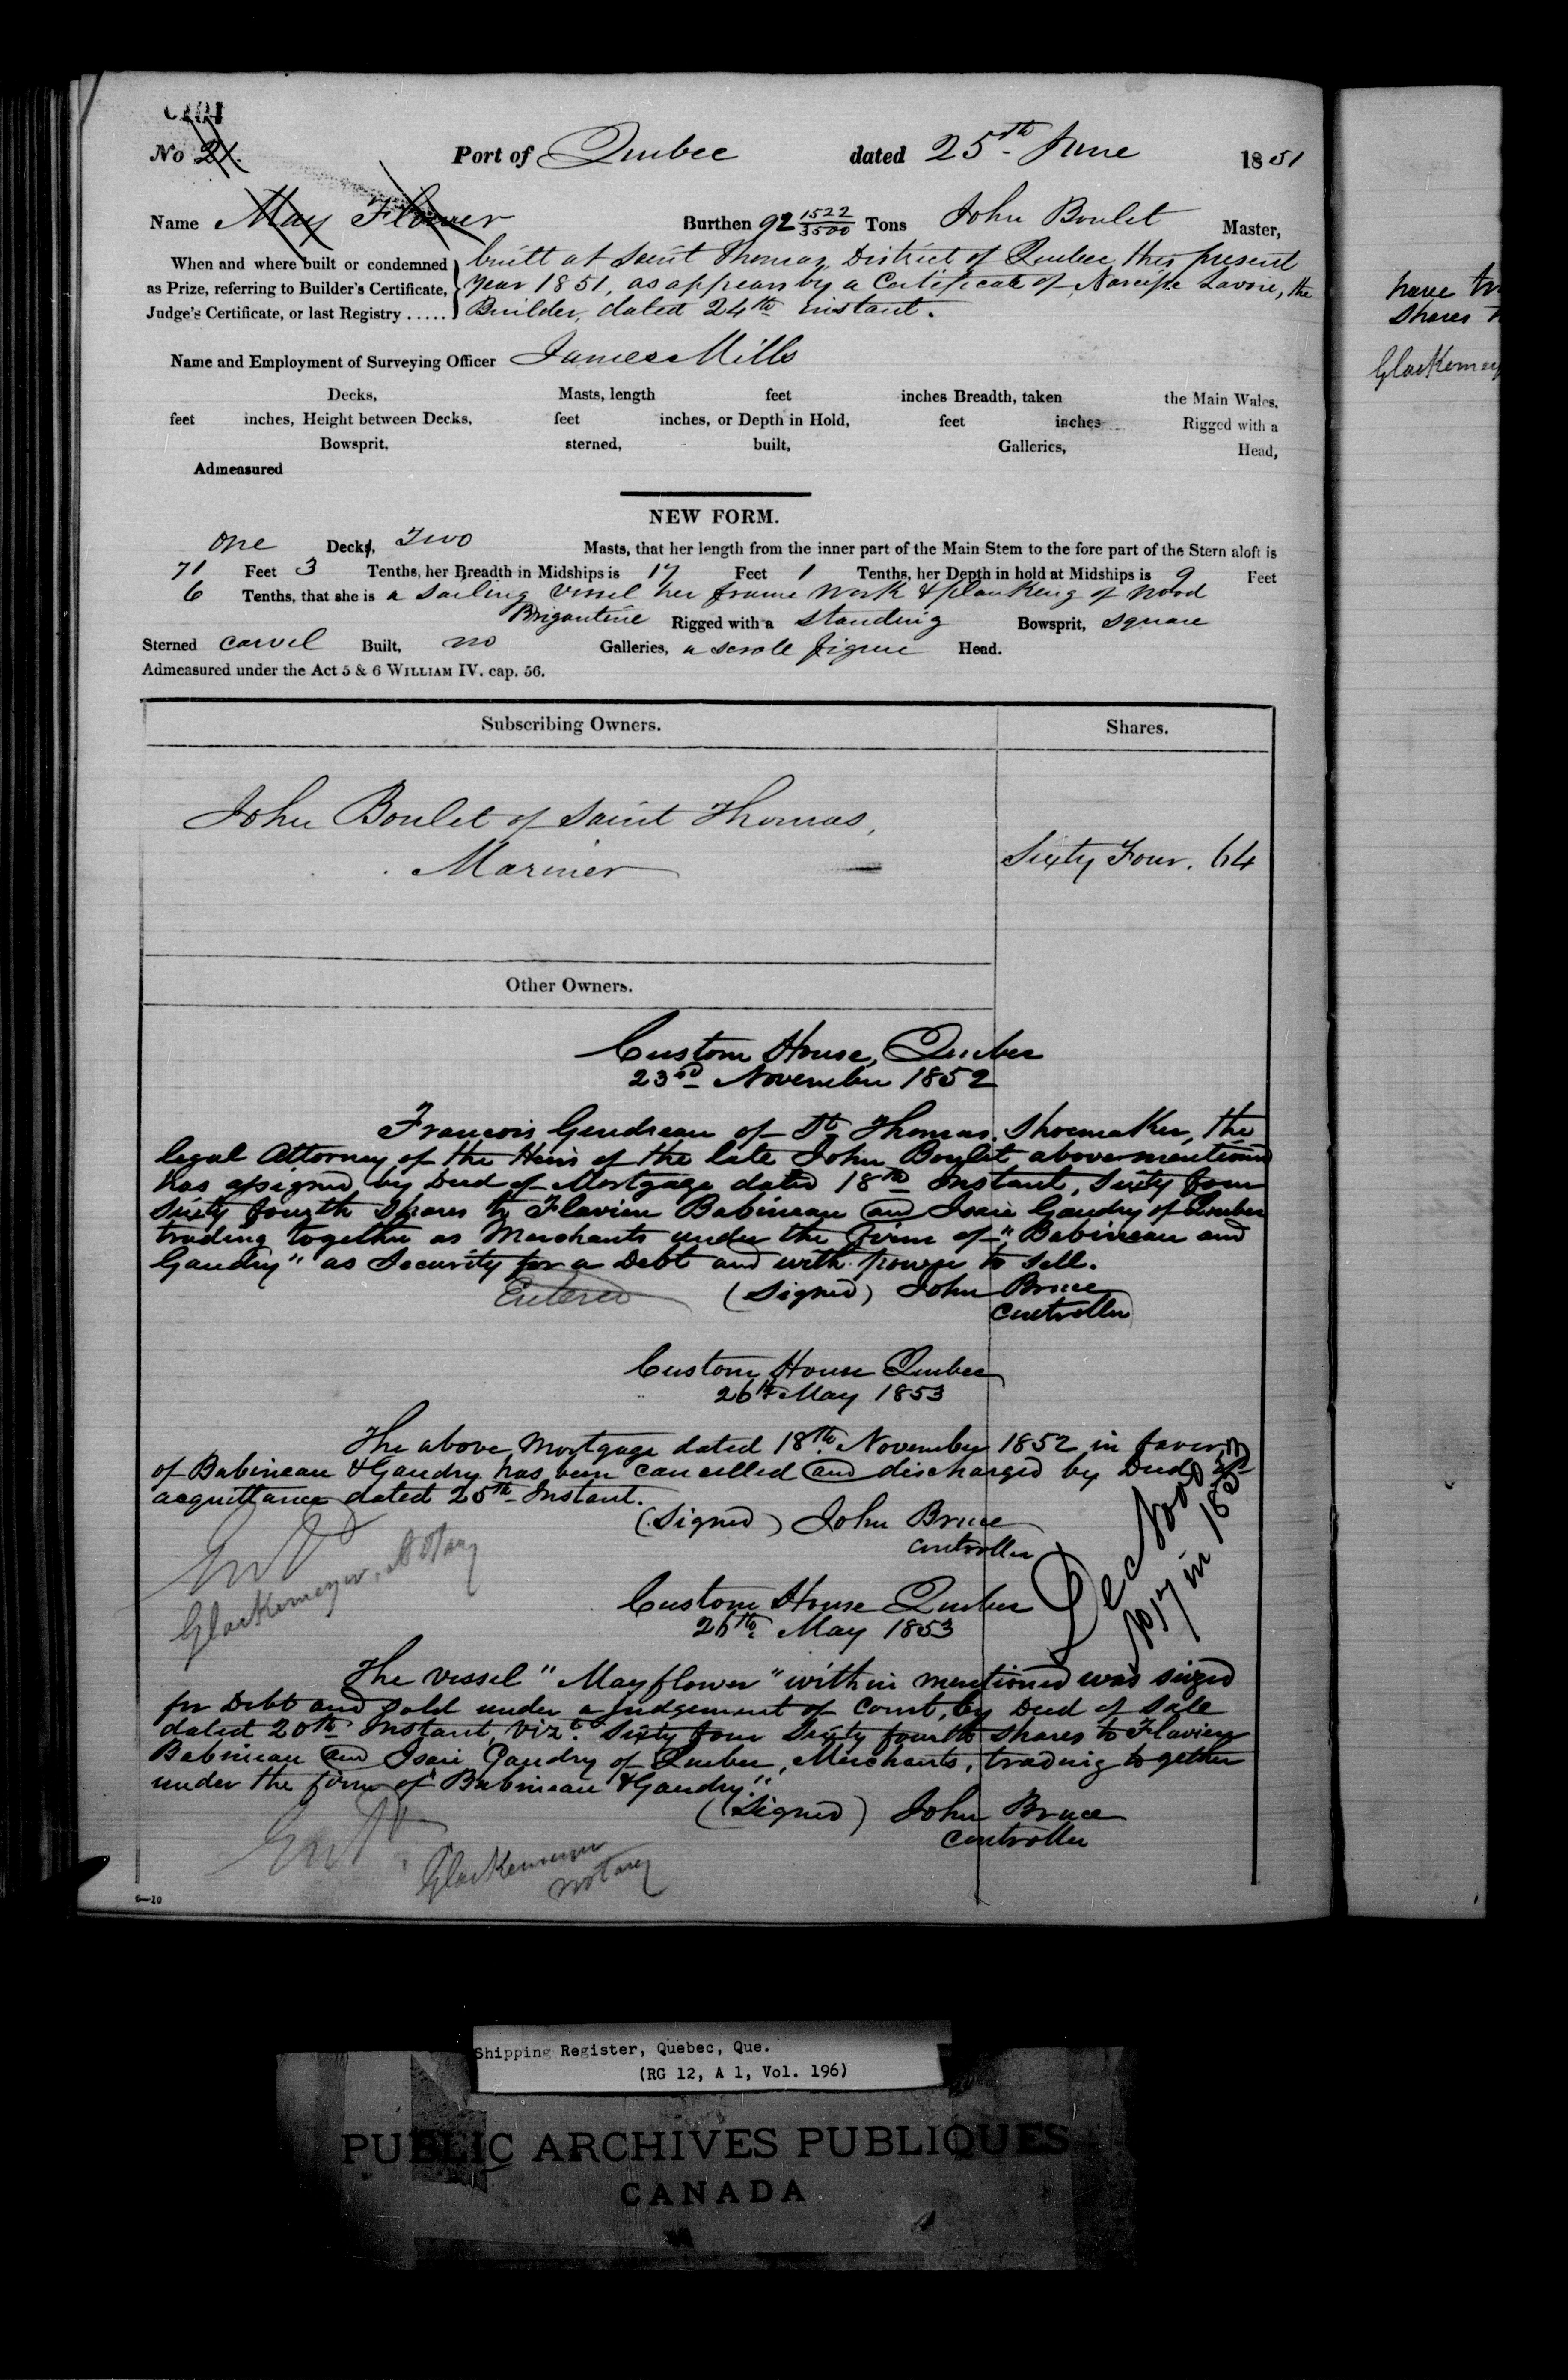 No 21.
Port of Quebec dated 25th June 1851
Name May Flower Burthen 92 1522/3500 Tons John Boulet Master,
When and where built or condemned as Prize, referring to Builder's Certificate, Judge's Certificate, or last Registry .....
built at Saint Thomas, District of Quebec this present
year 1851, as appears by a Certificate of Narcisse Lavoie, the
Builder, dated 24th instant.
Name and Employment of Surveying Officer James Mills
Decks, Masts, length feet inches Breadth, taken the Main Wales,
feet inches, Height between Decks, feet inches, or Depth in Hold, feet inches Rigged with a
Bowsprit, sterned, built, Galleries, Head,
Admeasured
NEW FORM.
One Decks, Two Masts, that her length from the inner part of the Main Stem to the fore part of the Stern aloft is
71 Feet 3 Tenths, her Breadth in Midships is 17 Feet 1 Tenths, her Depth in hold at Midships is 9 Feet
6 Tenths, that she is a sailing vessel her frame work & planking of wood
Brigantine Rigged with a standing Bowsprit, square
Sterned carvel Built, no Galleries, a scroll figure Head.
Admeasured under the Act 5 & 6 WILLIAM IV. cap. 56.
Subscribing Owners. Shares.
John Boulet of Saint Thomas,
Mariner
Sixty Four. 64
Other Owners.
Custom House, Quebec
23rd November 1852
Francois Gendreau of St Thomas, Shoemaker, the
legal Attorney of the Heirs of the late John Boulet abovementioned
has assigned by Deed of Mortgage dated 18th Instant, Sixty four
Sixty fourth Shares to Flavien Babineau and Isaie Gaudry of Quebec
trading together as Merchants under the Firm of "Babineau and
Gaudry" as Security for a Debt and with power to sell.
Entered (Signed) John Bruce
Controller
Custom House Quebec
26th May 1853
The above Mortgage dated 18th November 1852 in favor
of Babineau & Gaudry has been cancelled and discharged by Deed of
acquittance dated 25th Instant.
(Signed) John Bruce
Controller
Entd
Glackemeyer, Notary
Custom House Quebec
26th May 1853
De Novo
No 17 in 1853
The vessel "Mayflower" within mentioned was seized
for Debt and sold under a judgement of Court, by Deed of Sale
dated 20th Instant, vizt. Sixty four Sixty fourth shares to Flavien
Babineau and Isaie Gaudry of Quebec, Merchants, trading together
under the firm of "Babineau & Gaudry."
(Signed) John Bruce
Controller
Entd
Glackemeyer
Notary
6—20
have
Shares
Shipping Register, Quebec, Que.
(RG 12, A 1, Vol. 196)
PUBLIC ARCHIVES PUBLIQUES
CANADA